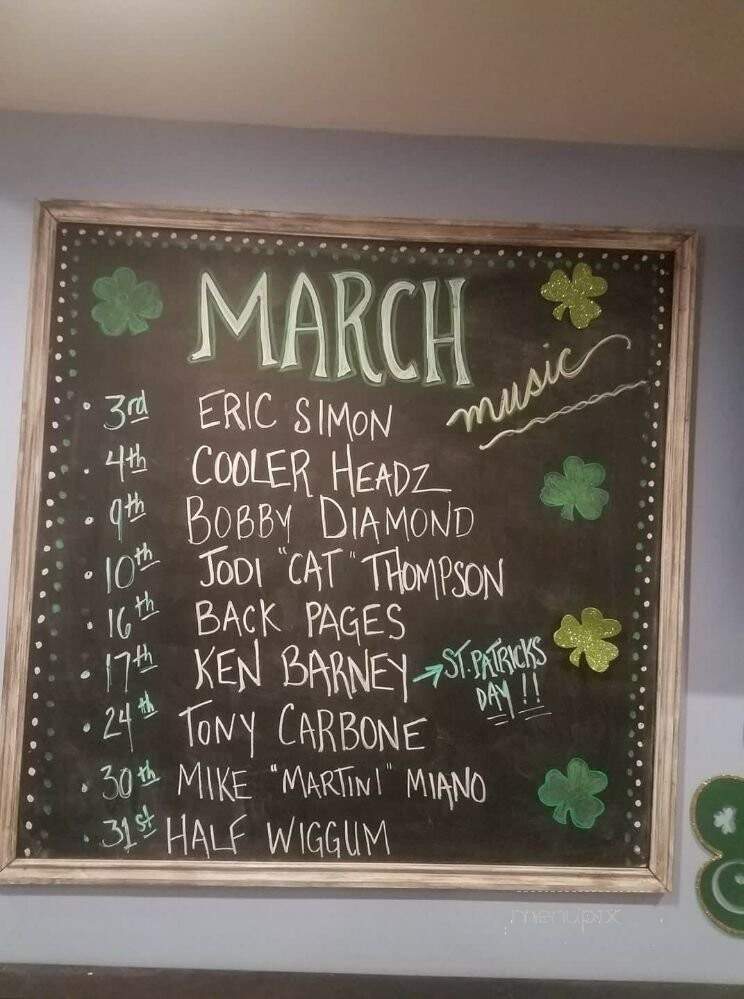 MARCH
music
3rd ERIC SIMON
4th COOLER HEADZ
9th BOBBY DIAMOND
10th JODI "CAT" THOMPSON
16th BACK PAGES
17th KEN BARNEY → ST. PATRICKS
DAY!!
24th TONY CARBONE
30th MIKE "MARTINI" MIANO
31st HALF WIGGUM
menupix